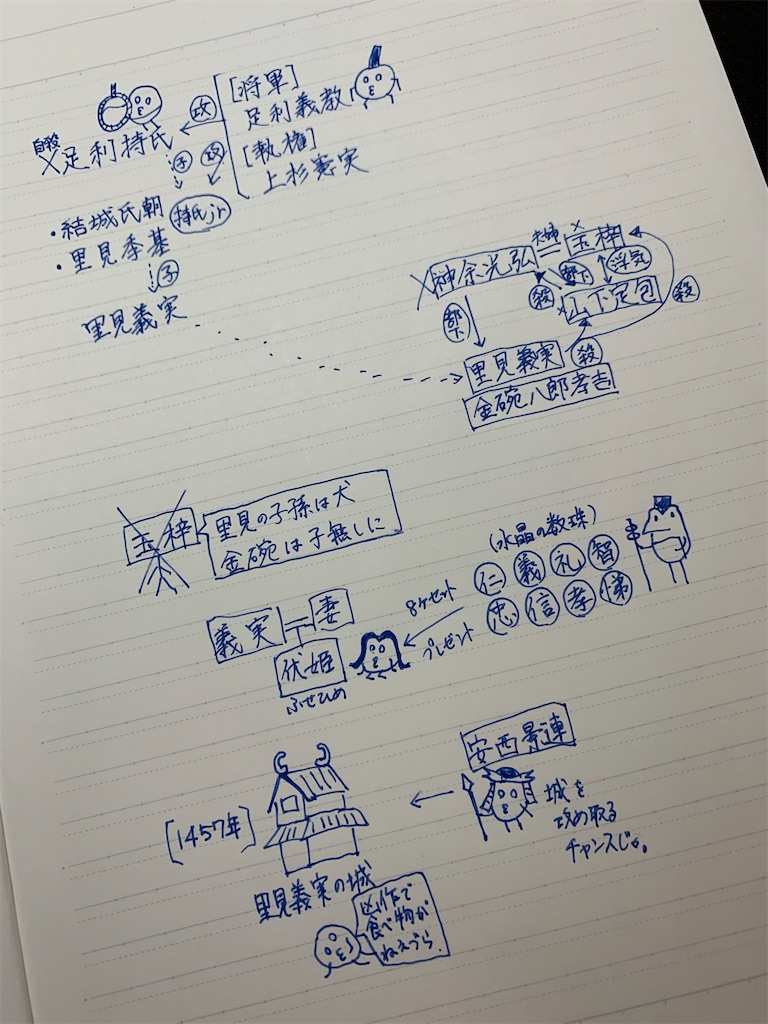 [将軍]
足利義教
[執権]
上杉憲実
攻
攻
自殺
×足利持氏
子
・結城氏朝
持氏jr
・里見季基
子
里見義実
×神余光弘
夫婦
×玉梓
部下
浮気
殺
×山下定包
殺
部下
里見義実
殺
金碗八郎孝吉
玉梓
里見の子孫は犬
金碗は子無しに
(水晶の数珠)
仁 義 礼 智
忠 信 孝 悌
8ケセット
プレゼント
義実
妻
伏姫
ふせひめ
安西景連
城を
攻め取る
チャンスじゃ。
[1457年]
里見義実の城
凶作で
食べ物が
ねえづら.